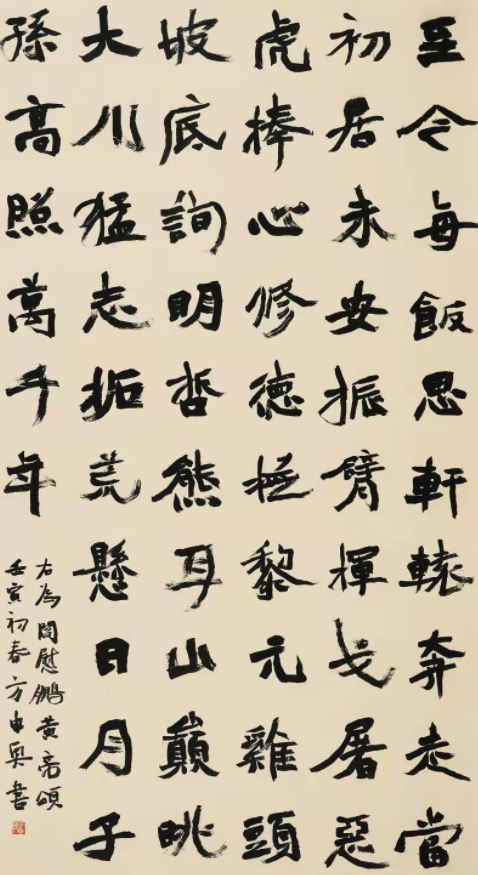 至令每飯思軒轅奔走當
初居未安振臂揮戈屠惡
虎捧心修德撫黎元雞頭
坡底詢明哲熊耳山巔眺
大川猛志拓荒懸日月子
孫高照萬千年
右為閻慰鵬黃帝頌
壬寅初春方由奥書